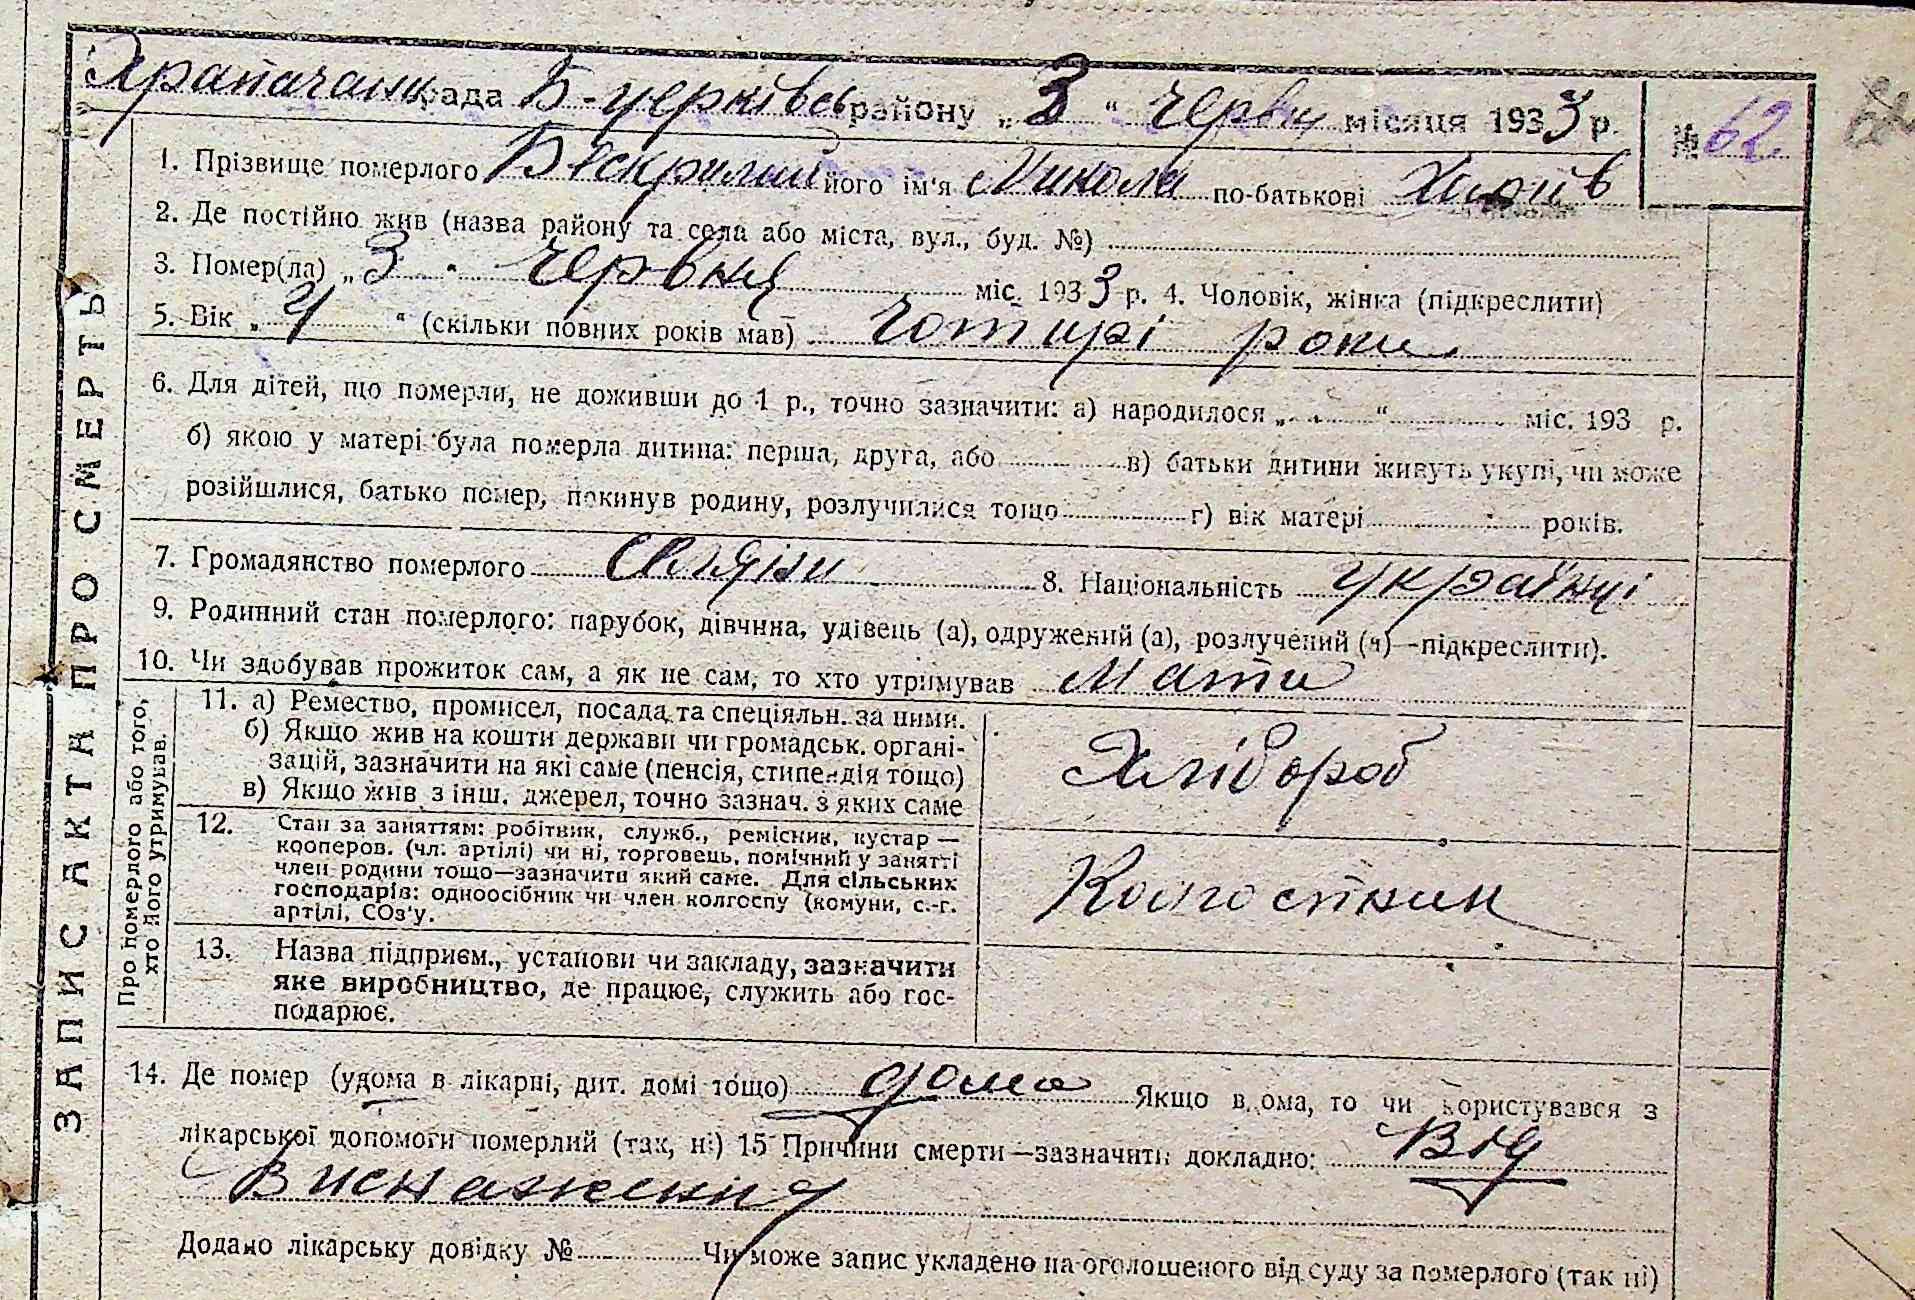 Храпачан. рада Б-церківськ району „3“ Червня місяця 1933 р. № 62
1. Прізвище померлого Бескрилий його ім'я Микола по-батькові
2. Де постійно жив (назва району та села або міста, вул., буд. №)
3. Помер(ла) „3“ червня міс. 1933 р. 4. Чоловік, жінка (підкреслити)
5. Вік „4“ (скільки повних років мав) Чотирі роки
6. Для дітей, що померли, не доживши до 1 р., точно зазначити: а) народилося „ “ міс. 193 р.
б) якою у матері була померла дитина: перша, друга, або в) батьки дитини живуть укупі, чи може
розійшлися, батько помер, покинув родину, розлучилися тощо г) вік матері років.
7. Громадянство померлого 8. Національність українці
9. Родинний стан померлого: парубок, дівчина, удівець (а), одружений (а), розлучений (а)—підкреслити).
10. Чи здобував прожиток сам, а як не сам, то хто утримував Мати
ЗАПИС АКТА ПРО СМЕРТЬ
Про померлого або того,
хто його утримував.
11. а) Ремество, промисел, посада та спеціяльн. за ними.
б) Якщо жив на кошти держави чи громадськ. органі-
зацій, зазначити на які саме (пенсія, стипендія тощо)
в) Якщо жив з інш. джерел, точно зазнач. з яких саме
Хлібороб
12. Стан за заняттям: робітник, служб., ремісник, кустар —
кооперов. (чл. артілі) чи ні, торговець, помічний у занятті
член родини тощо—зазначити який саме. Для сільських
господарів: одноосібник чи член колгоспу (комуни, с.-г.
артілі, СОз'у.
Колгоспник
13. Назва підприєм., установи чи закладу, зазначити
яке виробництво, де працює, служить або гос-
подарює.
14. Де помер (удома в лікарні, дит. домі тощо) дома Якщо вдома, то чи користувався з
лікарської допомоги померлий (так, ні) 15 Причини смерти—зазначить докладно: Від
Виснаження
Додано лікарську довідку № Чи може запис укладено на оголошеного від суду за померлого (так ні)